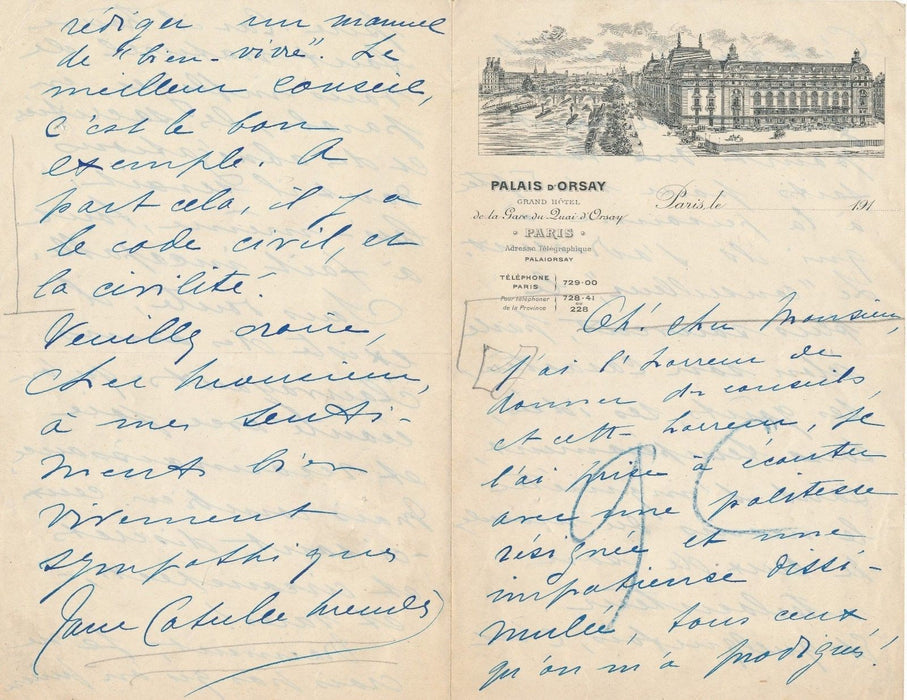 PALAIS D'ORSAY
GRAND HÔTEL
de la Gare du Quai d'Orsay
• PARIS •
Adresse Télégraphique
PALAIORSAY
TÉLÉPHONE
PARIS 729-00
Pour téléphoner
de la Province 728-41
ou
228
Paris, le 191
Oh! cher Monsieur,
j'ai l'horreur de
donner des conseils,
et cette horreur, je
l'ai prise à écouter
avec une politesse
résignée et une
impatiense dissi-
mulée, tous ceux
qu'on m'a prodigués!
rédiger un manuel
de "bien-vivre". Le
meilleur conseil,
c'est le bon
exemple. A
part cela, il y a
le code civil, et
la civilité.
Veuillez croire,
cher monsieur,
à mes senti-
ments bien
vivement
sympathiques
Jane Catulle Mendès